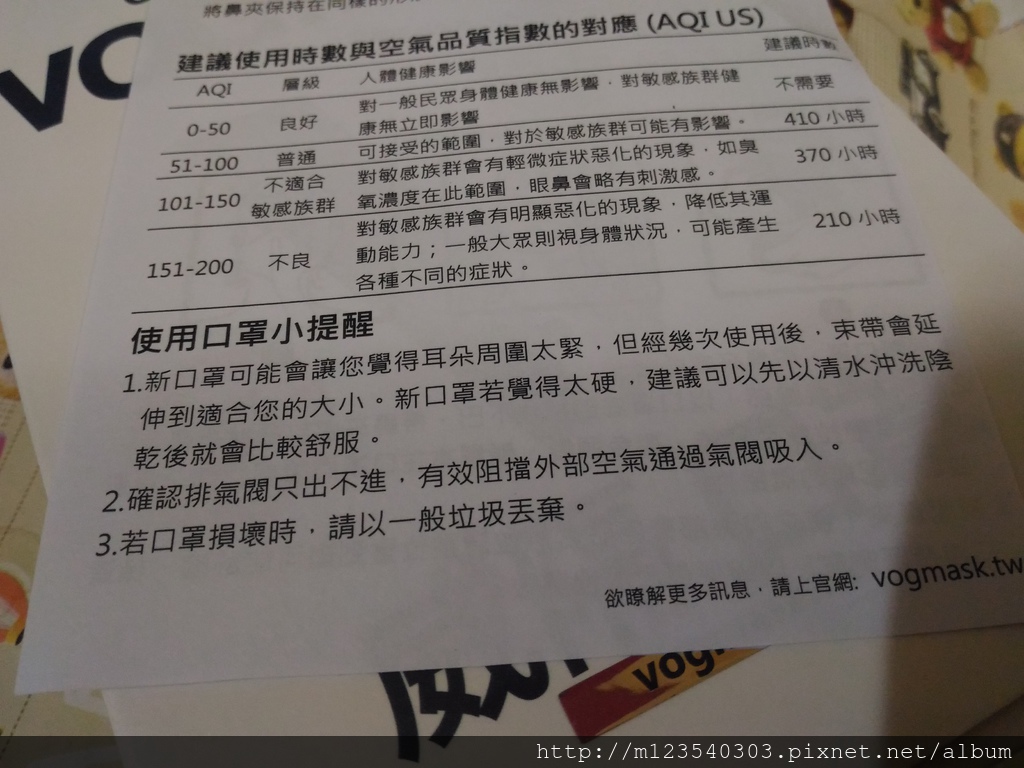 將鼻夾保持在同樣的
建議使用時數與空氣品質指數的對應 (AQI US)
AQI 層級 人體健康影響 建議時數
0-50 良好 對一般民眾身體健康無影響，對敏感族群健 不需要
康無立即影響
51-100 普通 可接受的範圍，對於敏感族群可能有影響。 410 小時
101-150 不適合 對敏感族群會有輕微症狀惡化的現象，如臭 370 小時
敏感族群 氧濃度在此範圍，眼鼻會略有刺激感。
對敏感族群會有明顯惡化的現象，降低其運
151-200 不良 動能力；一般大眾則視身體狀況，可能產生 210 小時
各種不同的症狀。
使用口罩小提醒
1.新口罩可能會讓您覺得耳朵周圍太緊，但經幾次使用後，束帶會延
伸到適合您的大小。新口罩若覺得太硬，建議可以先以清水沖洗陰
乾後就會比較舒服。
2.確認排氣閥只出不進，有效阻擋外部空氣通過氣閥吸入。
3.若口罩損壞時，請以一般垃圾丟棄。
欲瞭解更多訊息，請上官網: vogmask.tw
http://m123540303.pixnet.net/album